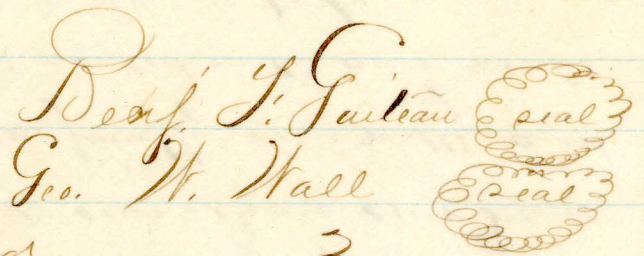 Benj. F. Guiteau seal
Geo. W. Wall seal